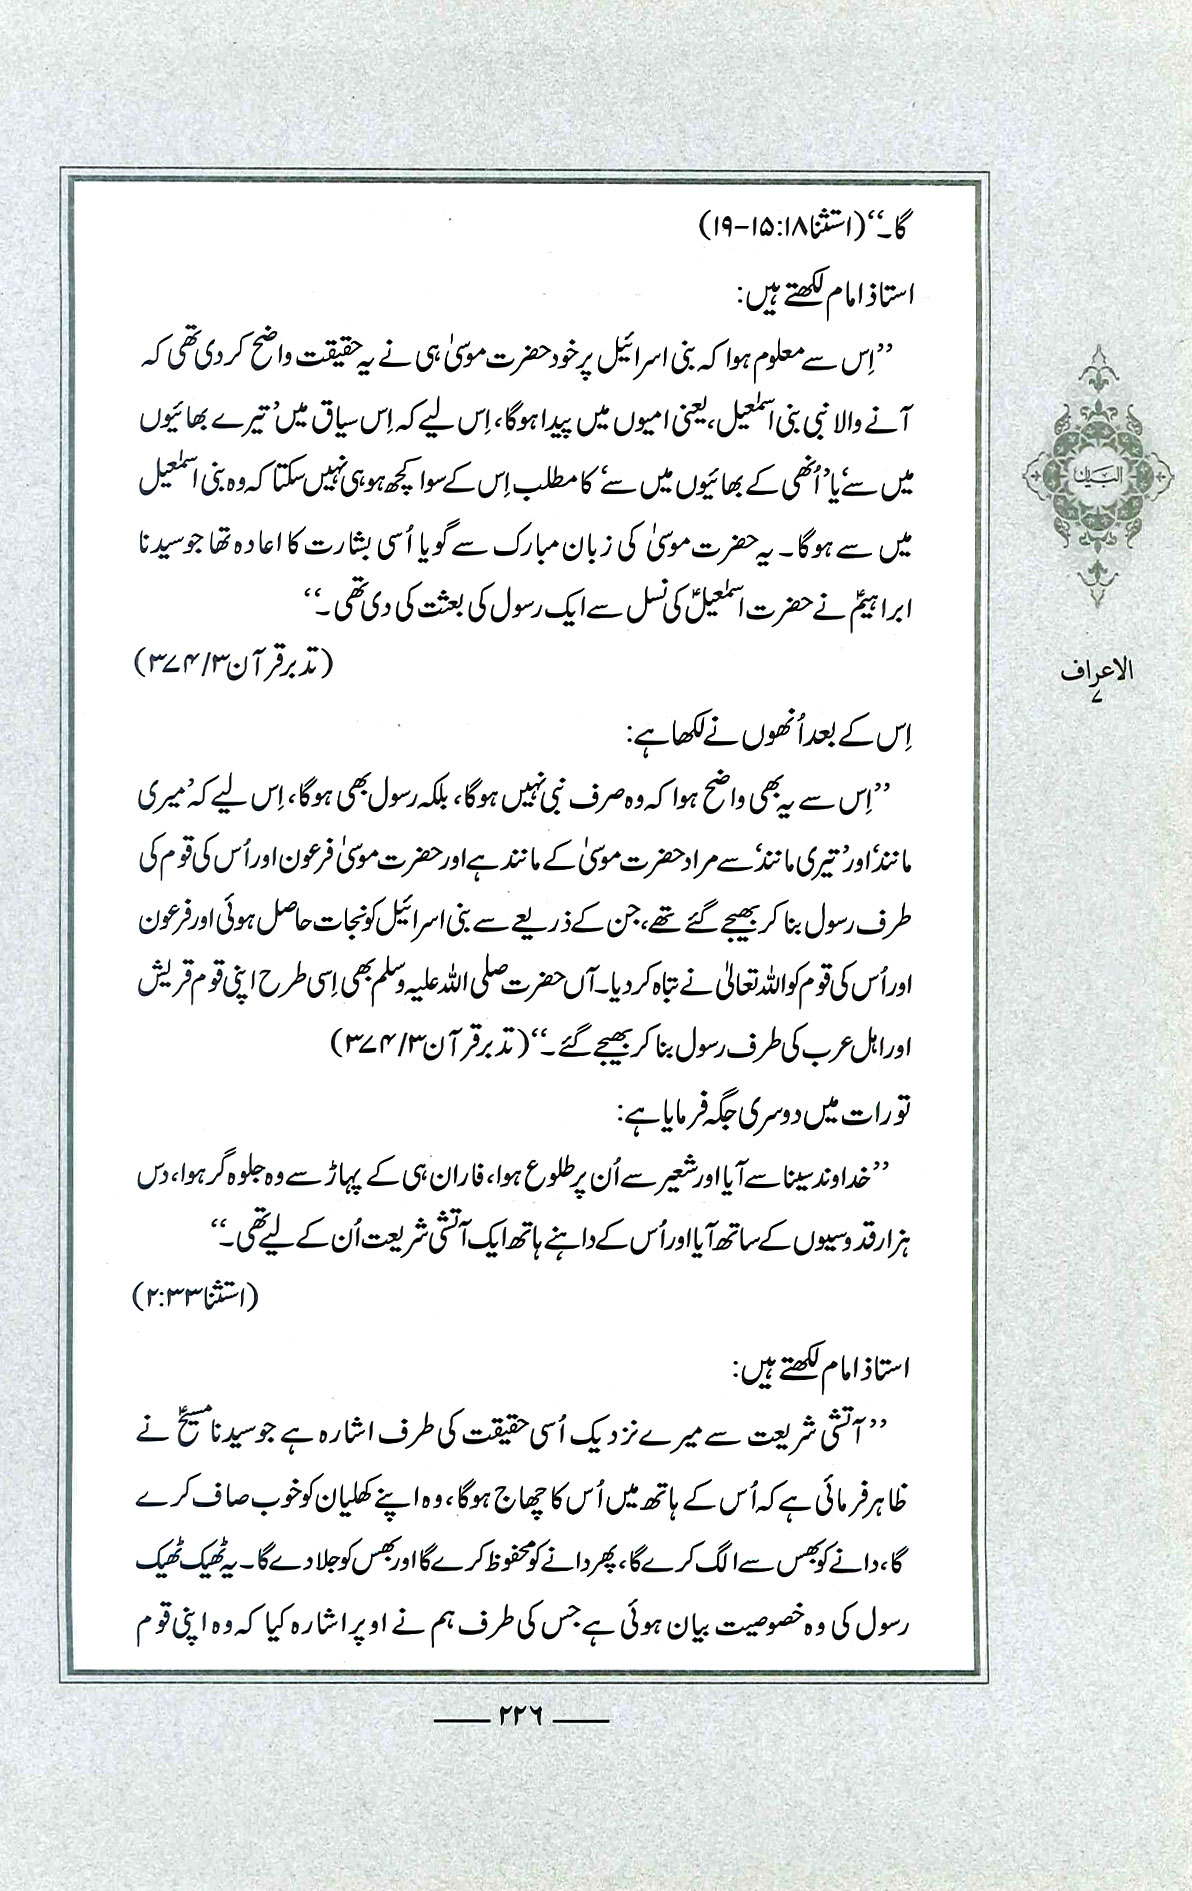 گا۔‘‘(استثنا۱۸:۱۵-۱۹)
استاذ امام لکھتے ہیں:
’’اِس سے معلوم ہوا کہ بنی اسرائیل پر خود حضرت موسیٰ ہی نے یہ حقیقت واضح کر دی تھی کہ
آنے والا نبی بنی اسمٰعیل، یعنی امیوں میں پیدا ہوگا، اِس لیے کہ اِس سیاق میں ’تیرے بھائیوں
میں سے‘ یا ’اُنھی کے بھائیوں میں سے‘ کا مطلب اِس کے سوا کچھ ہو ہی نہیں سکتا کہ وہ بنی اسمٰعیل
میں سے ہوگا۔ یہ حضرت موسیٰ کی زبان مبارک سے گویا اُسی بشارت کا اعادہ تھا جو سیدنا
ابراہیمؑ نے حضرت اسمٰعیلؑ کی نسل سے ایک رسول کی بعثت کی دی تھی۔‘‘
(تدبر قرآن ۳/ ۳۷۴)
اِس کے بعد اُنھوں نے لکھا ہے:
’’اِس سے یہ بھی واضح ہوا کہ وہ صرف نبی نہیں ہوگا، بلکہ رسول بھی ہوگا، اِس لیے کہ ’میری
مانند‘ اور ’تیری مانند‘ سے مراد حضرت موسیٰ کے مانند ہے اور حضرت موسیٰ فرعون اور اُس کی قوم کی
طرف رسول بنا کر بھیجے گئے تھے، جن کے ذریعے سے بنی اسرائیل کو نجات حاصل ہوئی اور فرعون
اور اُس کی قوم کو اللہ تعالیٰ نے تباہ کر دیا۔ آں حضرت صلی اللہ علیہ وسلم بھی اِسی طرح اپنی قوم قریش
اور اہل عرب کی طرف رسول بنا کر بھیجے گئے۔‘‘ (تدبر قرآن ۳/ ۳۷۴)
تورات میں دوسری جگہ فرمایا ہے:
’’خداوند سینا سے آیا اور شعیر سے اُن پر طلوع ہوا، فاران ہی کے پہاڑ سے وہ جلوہ گر ہوا، دس
ہزار قدوسیوں کے ساتھ آیا اور اُس کے داہنے ہاتھ ایک آتشی شریعت اُن کے لیے تھی۔‘‘
(استثنا۳۳:۲)
استاذ امام لکھتے ہیں:
’’آتشی شریعت سے میرے نزدیک اُسی حقیقت کی طرف اشارہ ہے جو سیدنا مسیحؑ نے
ظاہر فرمائی ہے کہ اُس کے ہاتھ میں اُس کا چھاج ہوگا، وہ اپنے کھلیان کو خوب صاف کرے
گا، دانے کو بھس سے الگ کرے گا، پھر دانے کو محفوظ کرے گا اور بھس کو جلا دے گا۔ یہ ٹھیک ٹھیک
رسول کی وہ خصوصیت بیان ہوئی ہے جس کی طرف ہم نے اوپر اشارہ کیا کہ وہ اپنی قوم
البیان
الاعراف
۷
۲۲۶